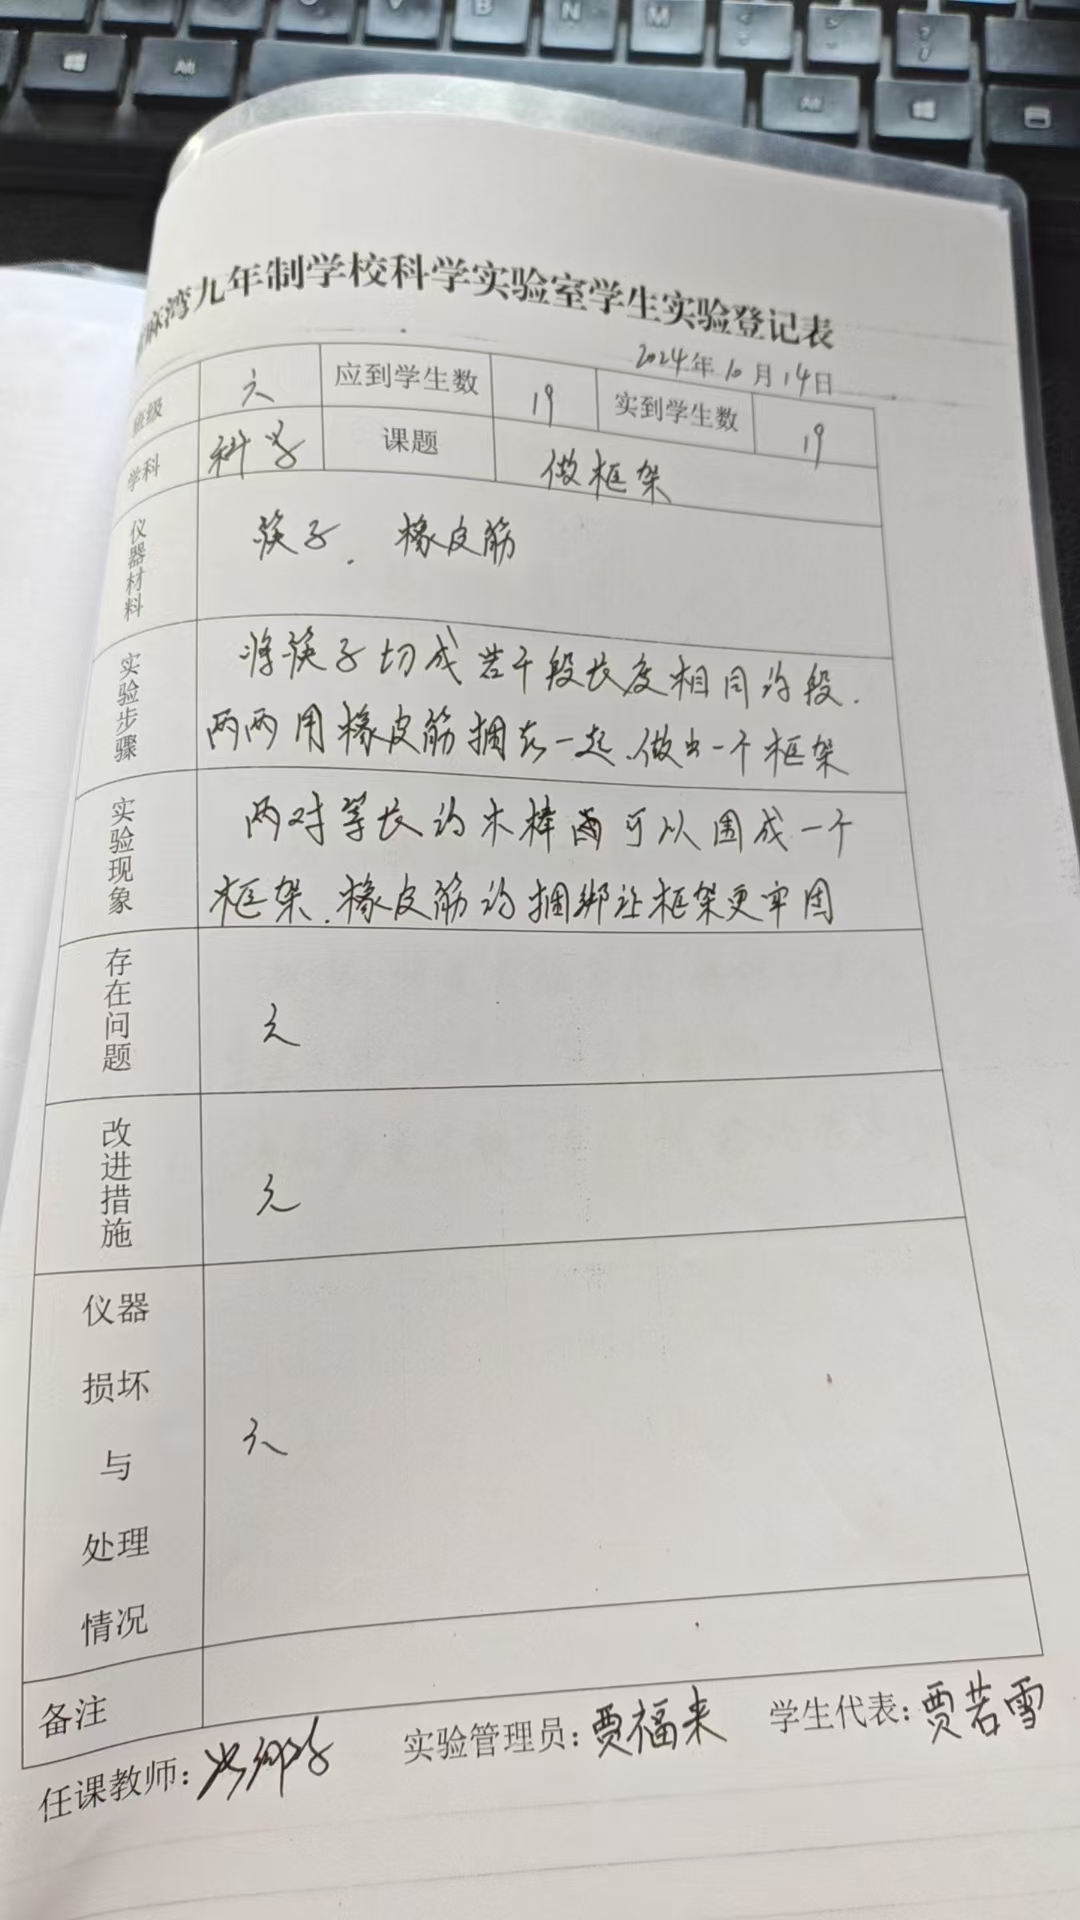 湾九年制学校科学实验室学生实验登记表
2024年10月14日
班级 六 应到学生数 19 实到学生数 19
学科 科学 课题 做框架
仪器材料 筷子. 橡皮筋
实验步骤 将筷子切成若干段长度相同的段.
两两用橡皮筋捆在一起.做出一个框架
实验现象 两对等长的木棒 可以围成一个
框架.橡皮筋的捆绑让框架更牢固
存在问题 无
改进措施 无
仪器
损坏
与
处理
情况 无
备注
任课教师: 实验管理员:贾福来 学生代表:贾若雪
Alt Alt
V B N M